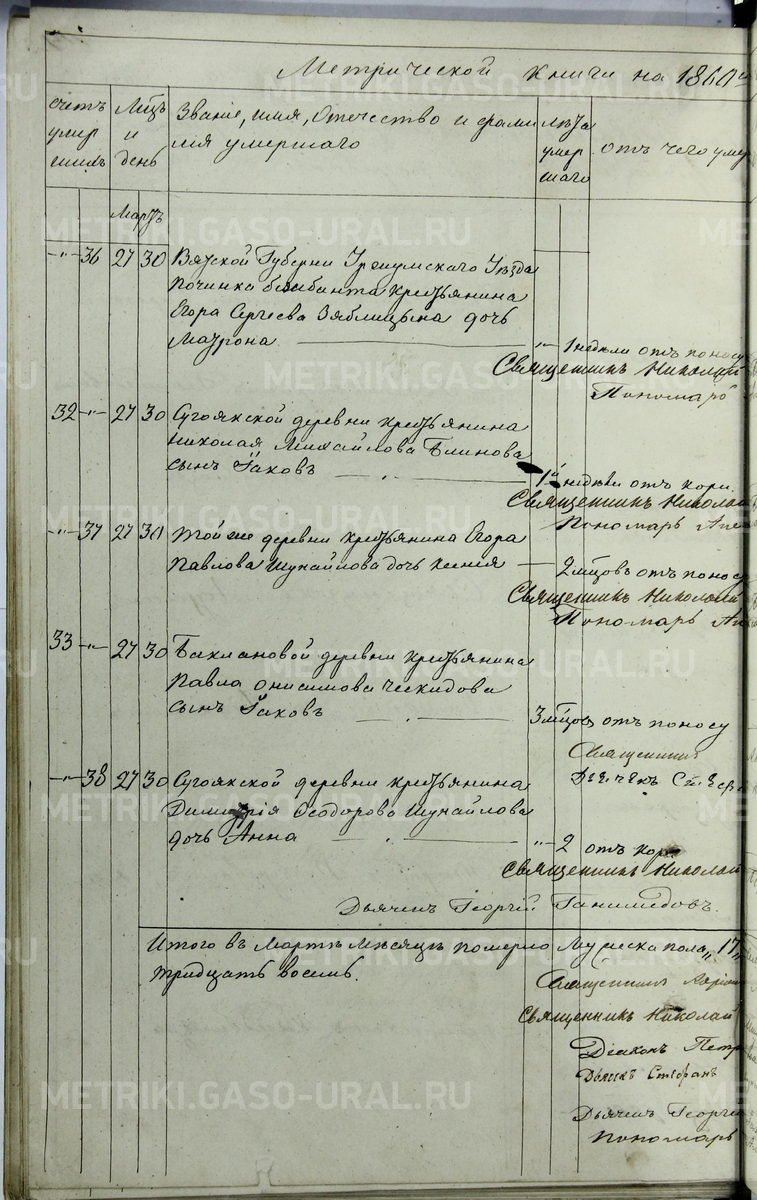 Метрической книги на 1860
счетъ умер шихъ
Мцъ и день
Званіе, имя, Отечество и фами
лія умершаго
лѣта умер шаго
отъ чего умер
Мартъ
36 27 30 Вятской Губерніи Уржумскаго Уѣзда
починка крестьянина
Егора Сергеева Зяблицына дочь
Матрона 1 недѣли отъ поносу
Священникъ Николай
Пономарь
32 27 30 Сугоякской деревни крестьянина
Николая Михайлова Блинова
сынъ Іаковъ 1 недѣли отъ кори.
Священникъ Николай
Пономарь
37 27 30 той же деревни крестьянина Егора
Павлова Шунайлова дочь Ксенія 2 мцовъ отъ поносу
Священникъ Николай
Пономарь
33 27 30 Баклановой деревни крестьянина
Павла Онисимова Чеккидова
сынъ Іаковъ 3 мцовъ отъ поносу
Священникъ
Дьячекъ Стефа
38 27 30 Сугоякской деревни крестьянина
Димитрія Ѳеодорова Шунайлова
дочь Анна 2 отъ кори
Священникъ Николай
Дьячекъ Георгій Ганимедовъ.
Итого въ Мартѣ мѣсяцѣ померло Мужеска пола „17„
тридцать восемь.
Священникъ
Священникъ Николай
Діаконъ Петр
Дьячекъ Стефанъ
Дьячекъ Георгій
Пономарь
METRIKI.GASO-URAL.RU